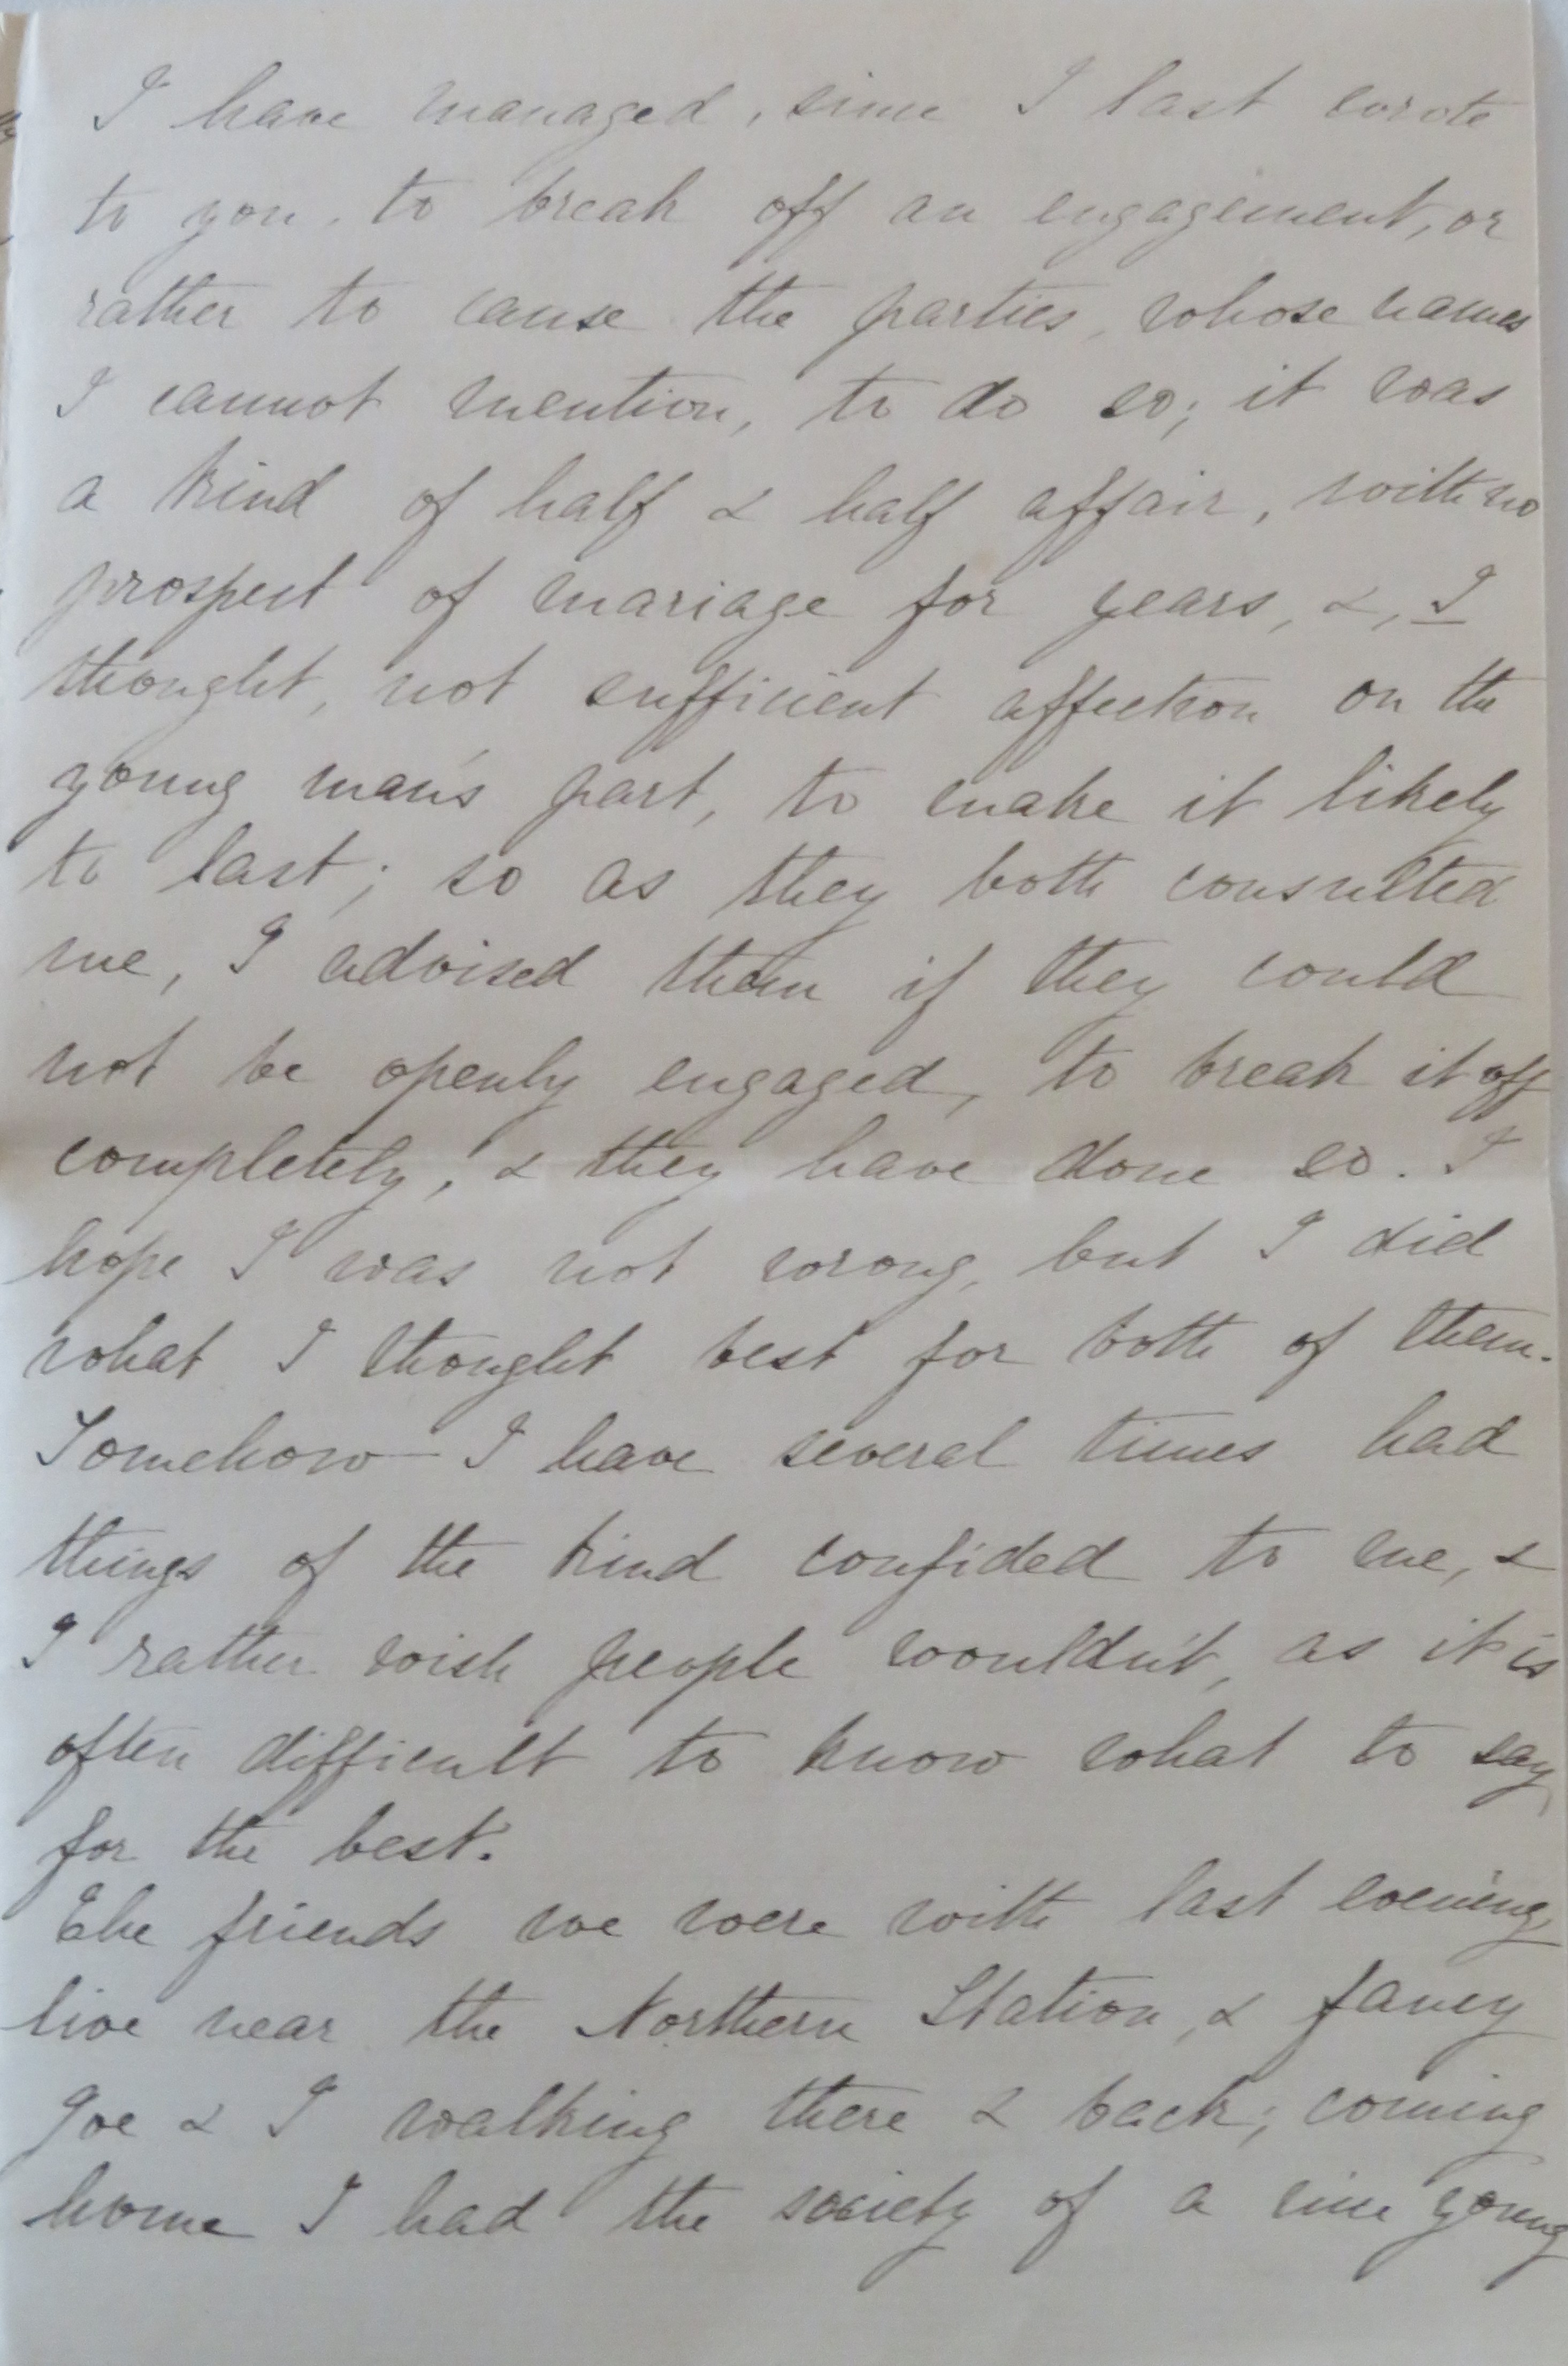 I have managed, since I last wrote
to you, to break off an engagement, or
rather to cause the parties, whose names
I cannot mention, to do so; it was
a kind of half & half affair, with no
prospect of mariage for years, &, I
thought, not sufficient affection on the
young man's part, to make it likely
to last; so as they both consulted
me, I advised them if they could
not be openly engaged, to break it off
completely, & they have done so. I
hope I was not wrong, but I did
what I thought best for both of them.
Somehow I have several times had
things of the kind confided to me, &
I rather wish people wouldn't, as it is
often difficult to know what to say
for the best.
The friends we were with last evening,
live near the Northern Station, & fancy
Joe & I walking there & back; coming
home I had the society of a nice young